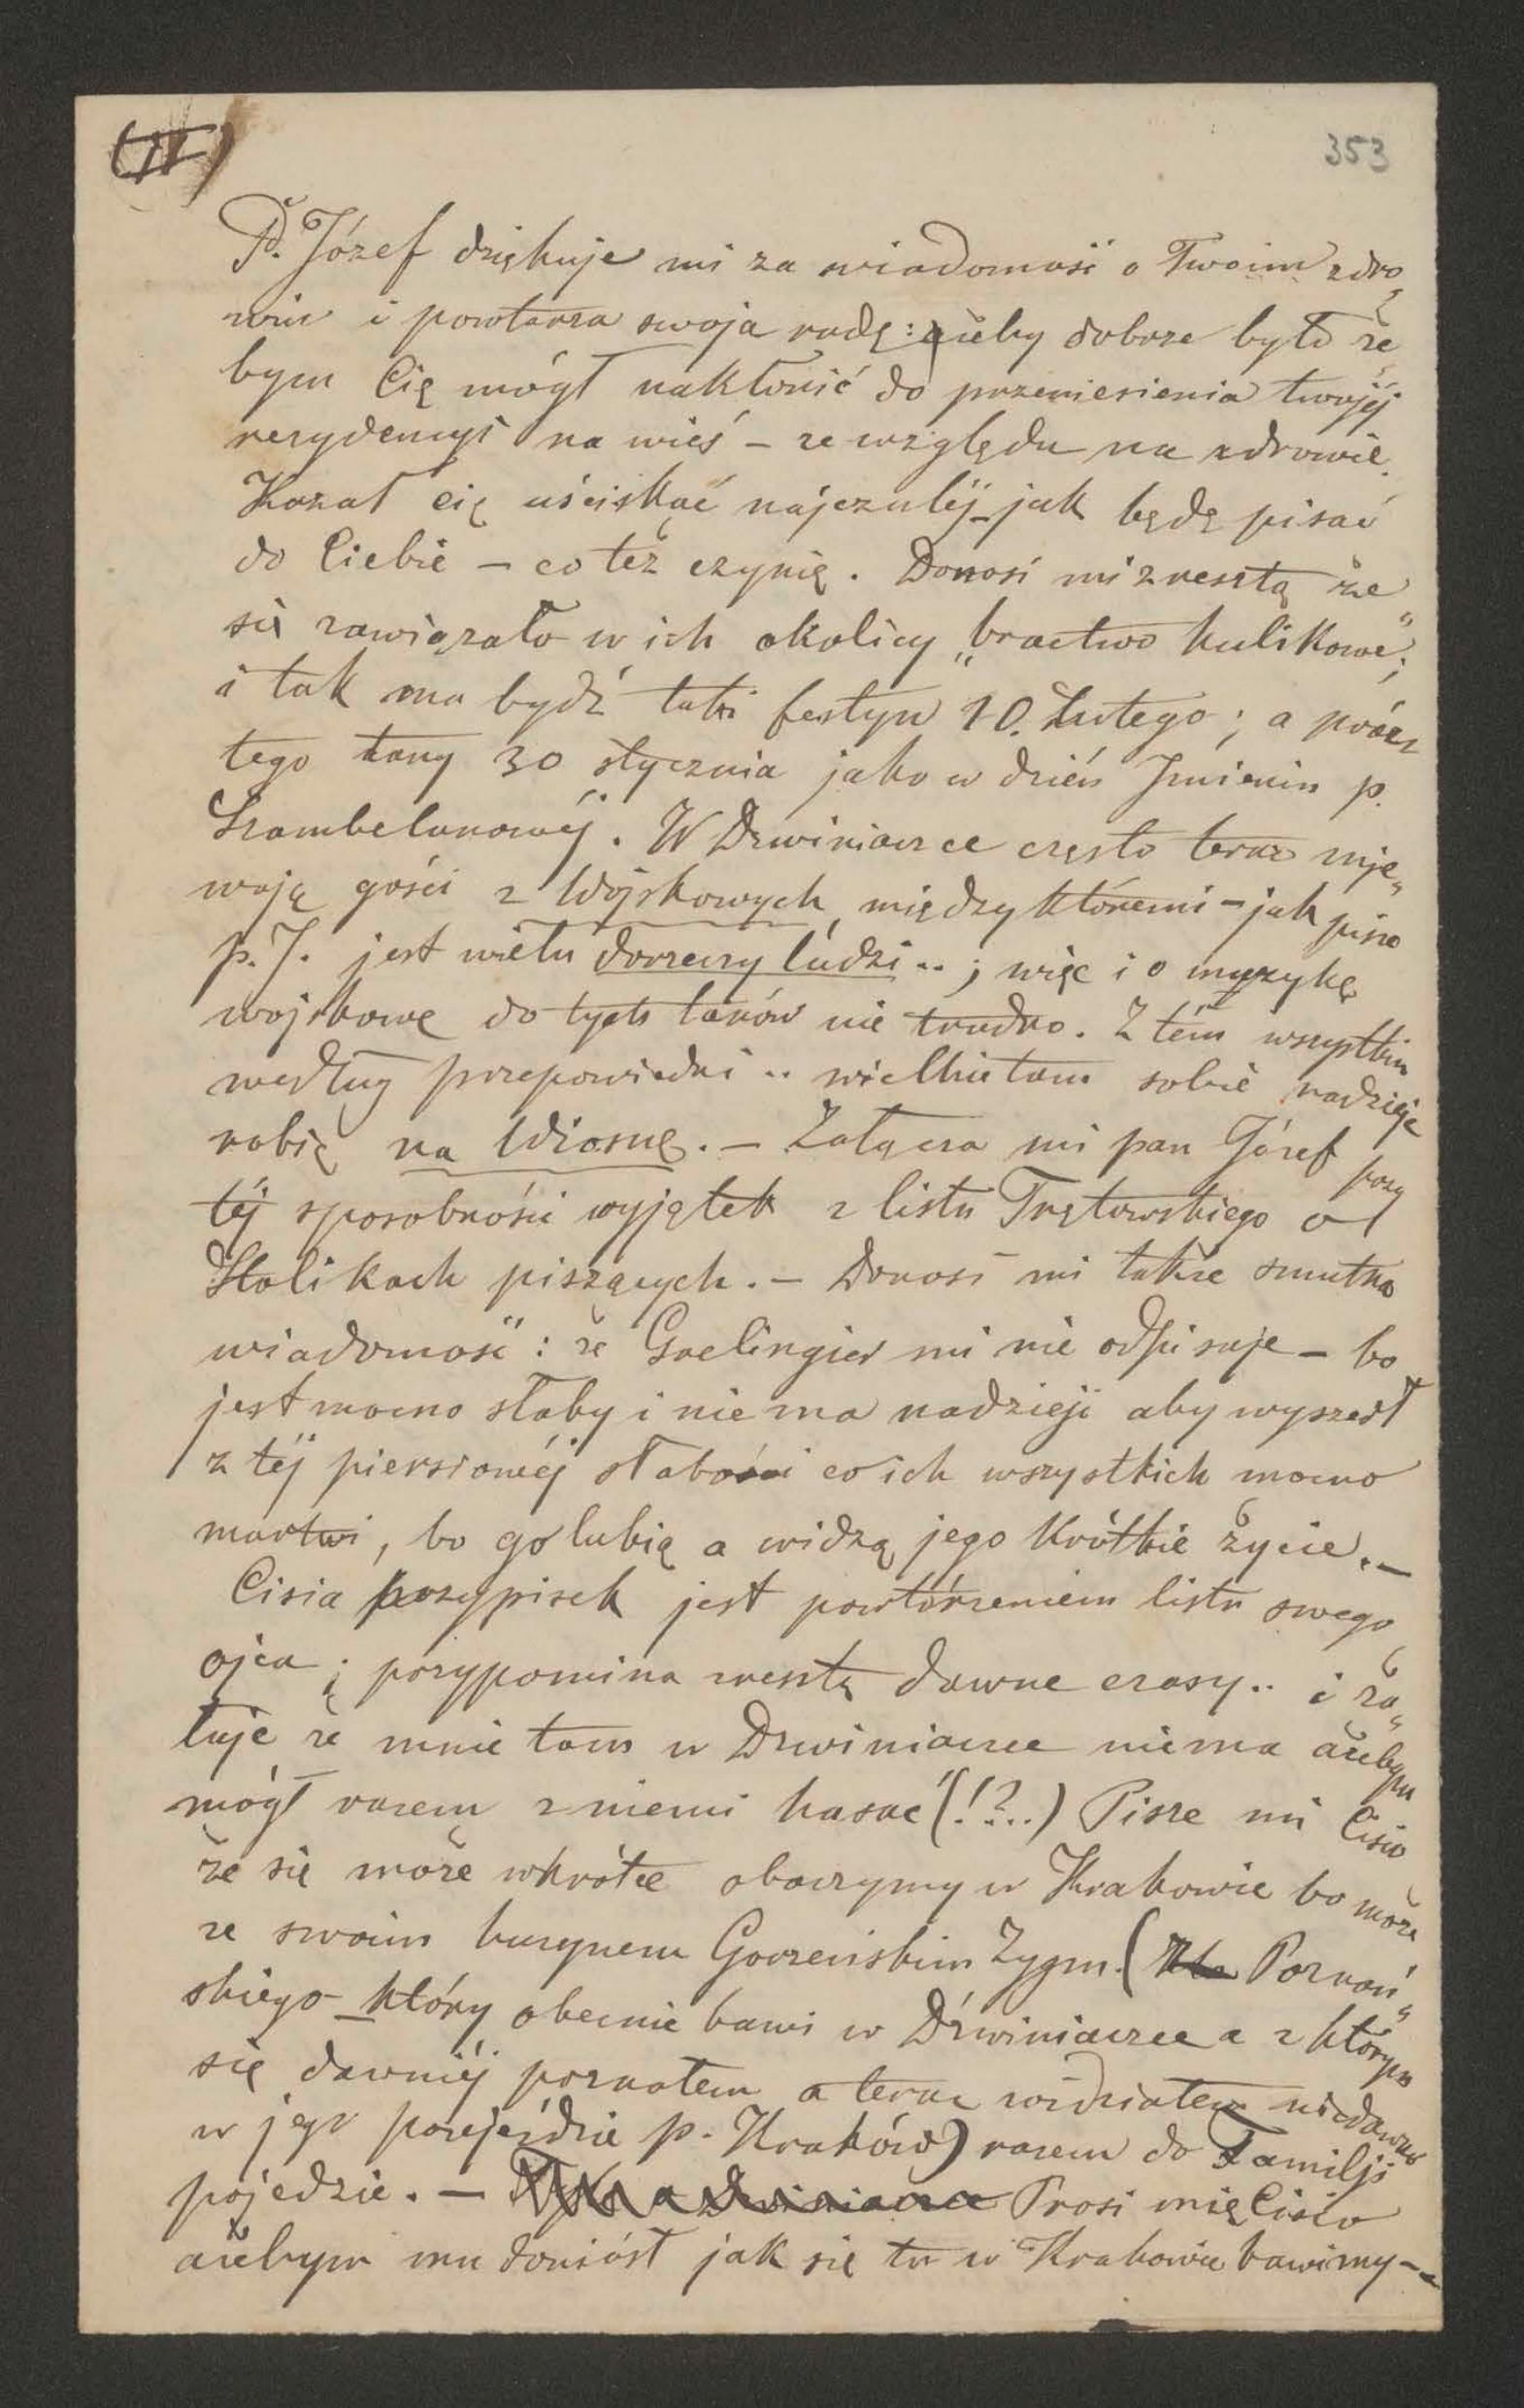 (II)
353
P. Józef dziękuje mi za wiadomość o Twoim zdro„
wiu i powtarza swoja radę: ażeby dobrze było że„
bym Cię mógł nakłonić do przeniesienia twojéj
rezydencyi na wieś – ze względu na zdrowie.
Kazał cię uściskać najczuléj jak będę pisać
do Ciebie – co też czynię. Donosi mi zresztą że
się zawiązało w ich okolicy „bractwo kulikowe";
i tak ma bydź taki festyn 10. Lutego; a prócz
tego tany 30 stycznia jako w dzień Imienin p.
Szambelanowéj. W Drwiniaczce często teraz mie„
wają gości z Wojskowych, między któremi – jak pisze
p. J. jest wielu dorzeczy ludzi..; więc i o muzykę
wojskowę do tych tanów nie trudno. Z tém wszystkim
według przepowiedni .. wielkie tam sobie nadzieje
robią na Wiosnę. – Załącza mi pan Józef przy
téj sposobności wyjątek z listu Trętowskiego o
Stolikach piszących. – Donosi mi także smutną
wiadomość: że Gaelingier mi nie odpisuje – bo
jest mocno słaby i nie ma nadzieji aby wyszedł
z téj piersiowéj słabości co ich wszystkich mocno
martwi, bo go lubią a widzą jego krótkie życie. –
Cisia przypisek jest powtórzeniem listu swego
ojca; przypomina zresztą dawne czasy.. i ża„
łuje że mnie tam w Drwiniaczce niema ażebym
mógł razem z niemi hasać (!?..) Pisze mi Cisio
że się może wkrótce obaczymy w Krakowie bo może
ze swoim kuzynem Gorzeńskim Zygm. (z Poznań„
skiego który obecnie bawi w Drwiniaczce a z którym
się dawniéj poznałem a teraz widziałem niedawno
w jego przejeździe p. Kraków) razem do Familji
pojedzie. – Prosi mię Cisio
ażebym mu doniósł jak się tu w Krakowie bawimy –